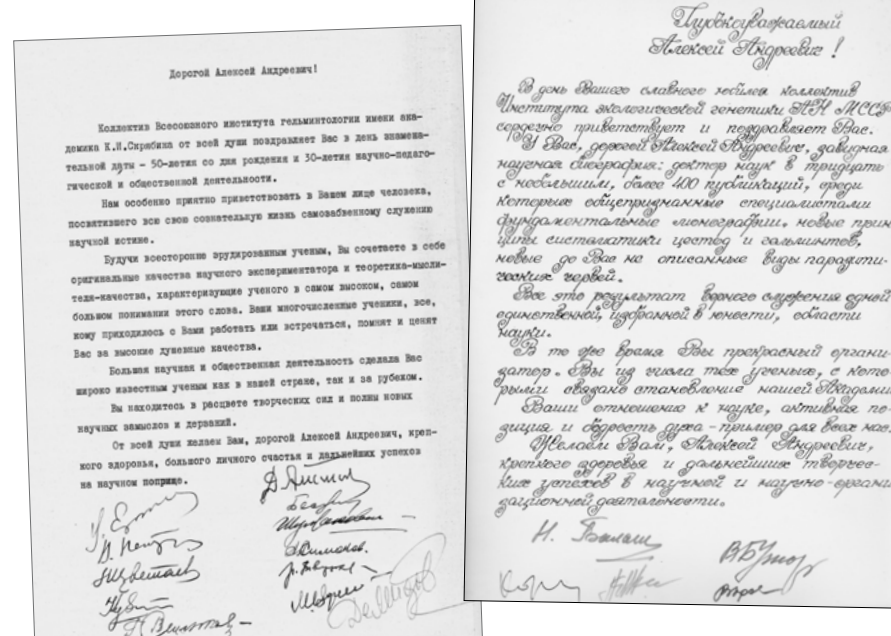 Дорогой Алексей Андреевич!
Коллектив Всесоюзного института гельминтологии имени ака-
демика К.И.Скрябина от всей души поздравляет Вас в день знамена-
тельной даты - 50-летия со дня рождения и 30-летия научно-педаго-
гической и общественной деятельности.
Нам особенно приятно приветствовать в Вашем лице человека,
посвятившего всю свою сознательную жизнь самозабвенному служению
научной истине.
Будучи всесторонне эрудированным ученым, Вы сочетаете в себе
оригинальные качества научного экспериментатора и теоретика-мысли-
теля-качества, характеризующие ученого в самом высоком, самом
большом понимании этого слова. Ваши многочисленные ученики, все,
кому приходилось с Вами работать или встречаться, помнят и ценят
Вас за высокие душевные качества.
Большая научная и общественная деятельность сделала Вас
широко известным ученым как в нашей стране, так и за рубежом.
Вы находитесь в расцвете творческих сил и полны новых
научных замыслов и дерзаний.
От всей души желаем Вам, дорогой Алексей Андреевич, креп-
кого здоровья, большого личного счастья и дальнейших успехов
на научном поприще.
Глубокоуважаемый
Алексей Андреевич!
В день Вашего славного юбилея коллектив
Института экологической генетики АН МССР
сердечно приветствует и поздравляет Вас.
У Вас, дорогой Алексей Андреевич, завидная
научная биография: доктор наук в тридцать
с небольшим, более 400 публикаций, среди
которых общепризнанные специалистами
фундаментальные монографии. новые прин
ципы систематики цестод и гельминтов,
новые до Вас не описанные виды паразити-
ческих червей.
Все это результат верного служения одной
единственной, избранной в юности, области
науки.
В то же время Вы прекрасный органи-
затор. Вы из числа тех ученых, с кото-
рыми связано становление нашей Академии
Ваши отношение к науке, активная по-
зиция и бодрость духа - пример для всех нас.
Желаем Вам, Алексей Андреевич,
крепкого здоровья и дальнейших творчес-
ких успехов в научной и научно-органи
зационной деятельности.